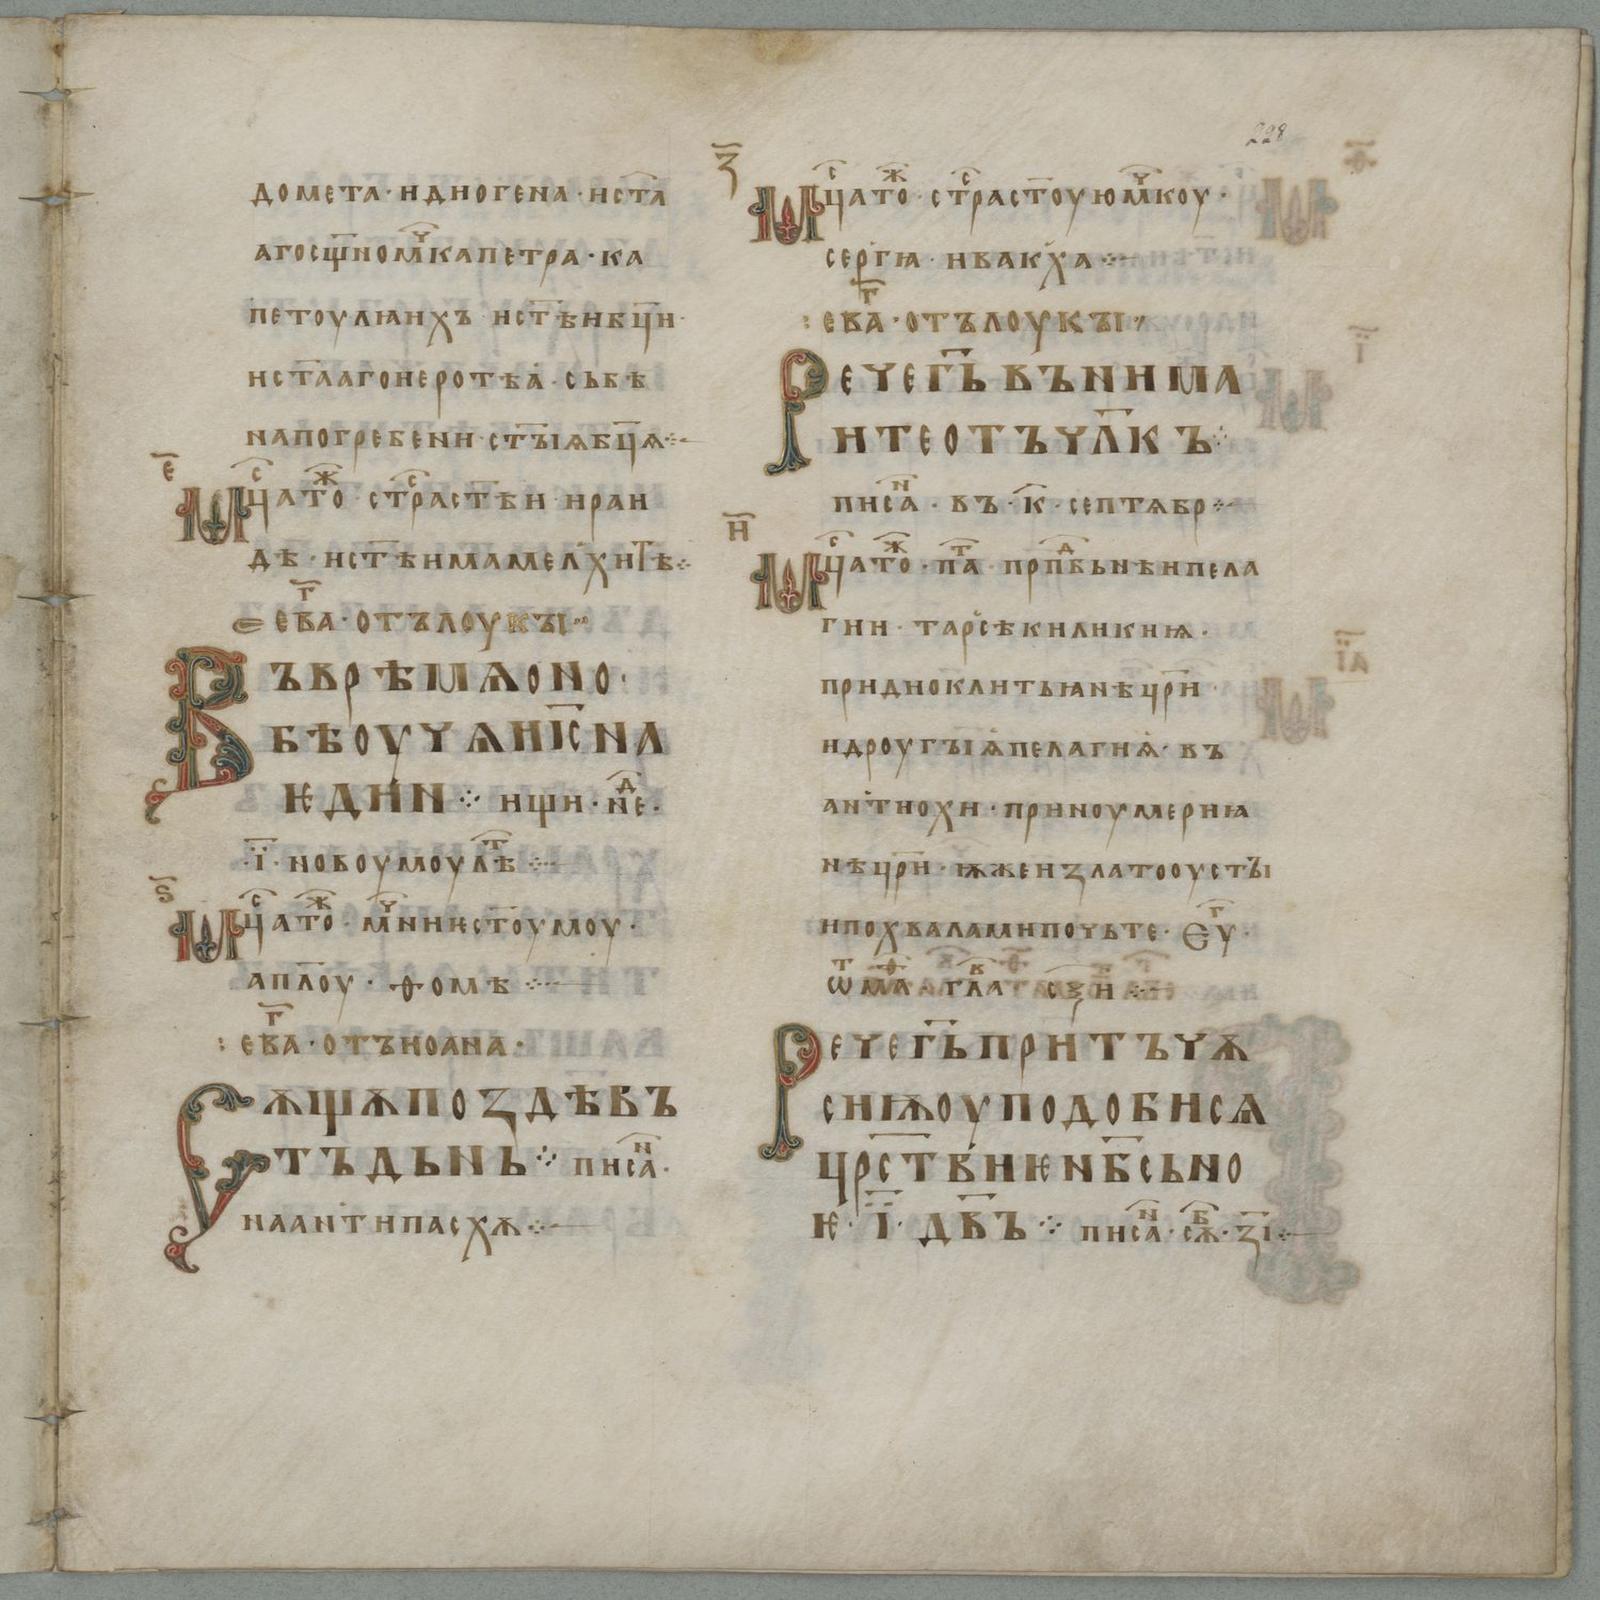 228
домета · и дногена · и ста
аго сщ҃номч҃ка петра · ка
петоулиихъ и ст҃ѣи бц҃и ·
и ст҃ааго иеротѣа · сьбѣ
на погребении ст҃ыѩ бц҃ѧ ⁘
е҃
Мц҃а то҃ж · страст҃ѣи ираи
дѣ · и ст҃ѣи мамелхитѣ ⁘
ева҃г · отъ лоукы
Въ врѣмѧ оно ·
бѣ оучѧ и іс҃ на
ѥдии ⁘ ищи · не҃д ·
· і҃ · новоумоу лѣ҃т ⁘
ѕ҃
Мц҃а то҃ж · мч҃ниѥ ст҃оумоу ·
апл҃оу · фомѣ ⁘
: ева҃г · отъ иоана ·
Сѫщѫ поздѣ въ
тъ дьнь ⁘ писа҃н ·
на антипасхѫ ⁘
з҃
Мц҃а то҃ж · страст҃оую мч҃коу ·
сергиꙗ · и вакха ⁘
: ева҃г · отъ лоукы
Рече г҃ь вънима
ите отъ чл҃къ ⁘
писа҃н · въ · к҃ · септѧбр ⁘
и҃
Мц҃а то҃ж · па҃т · прп҃дбьнѣи пела
гии · тарсѣ киликиꙗ ·
при диоклитьꙗнѣ цр҃и ·
и дроугыѩ пелагиѩ · въ
антиохи · при ноумериꙗ
нѣ цр҃и · ѭже и златооусты
и похваламипочьте · еу҃г ·
Рече г҃ь притъчѫ
сиѭ оуподобисѧ
цр҃ств҃иѥ нб҃сьно
ѥ · і҃ · дв҃ъ ⁘ писа҃н · сѫ҃б · зі҃ ⁘